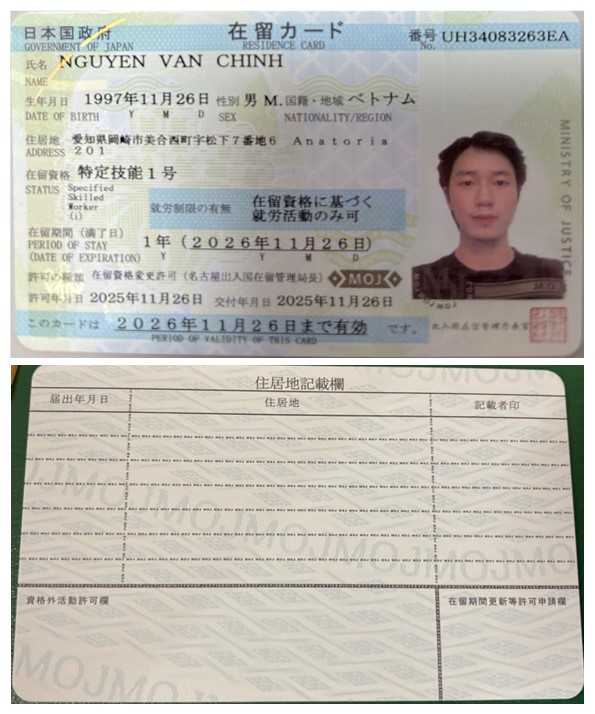 日本国政府
GOVERNMENT OF JAPAN
在留カード
RESIDENCE CARD
番号 No. UH34083263EA
氏名 NAME NGUYEN VAN CHINH
生年月日 1997年11月26日 性別 男 M. 国籍・地域 ベトナム
DATE OF BIRTH Y M D SEX NATIONALITY/REGION
住居地 ADDRESS 愛知県岡崎市美合西町字松下7番地6 Anatoria
201
在留資格 特定技能1号
STATUS Specified
Skilled
Worker
(i)
就労制限の有無 在留資格に基づく
就労活動のみ可
在留期間(満了日)
PERIOD OF STAY
(DATE OF EXPIRATION)
1年(2026年11月26日)
Y Y M D
許可の種類 在留資格変更許可(名古屋出入国在留管理局長)
MOJ
許可年月日 2025年11月26日 交付年月日 2025年11月26日
このカードは 2026年11月26日まで有効 です。
PERIOD OF VALIDITY OF THIS CARD
MINISTRY OF JUSTICE
MOJ
住居地記載欄
届出年月日 住居地 記載者印
MOJMOJMOJMOJ
資格外活動許可欄 在留期間更新等許可申請欄
MOJMOJMOJ